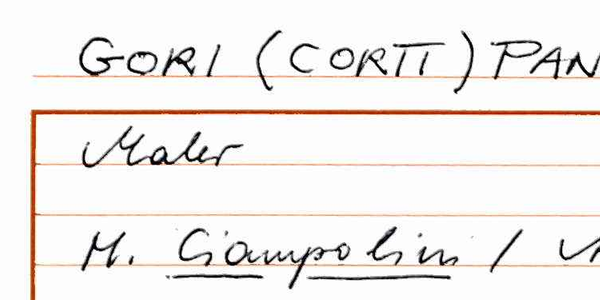 GORI (CORTI) PAN
Maler
M. Ciampolini /